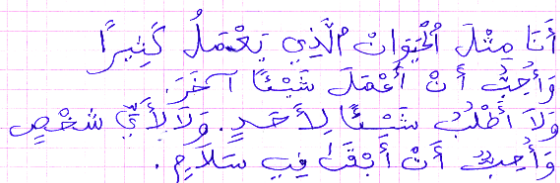 أَنَا مِثْلَ اُلْحَيَوَانْ اُلَّذِي يَعْمَلُ كَثِيرًا
وَأُحِبُّ أَنْ أَعْمَلَ شَيْئًا آخَرَ.
وَلَا أَطْلُبُ شَيْئًا لِأَحَدٍ. وَلَا لِأَيِّ شَخْصٍ
وَأُحِبُّ أَنْ أَبْقَىٰ فِي سَلَامٍ.